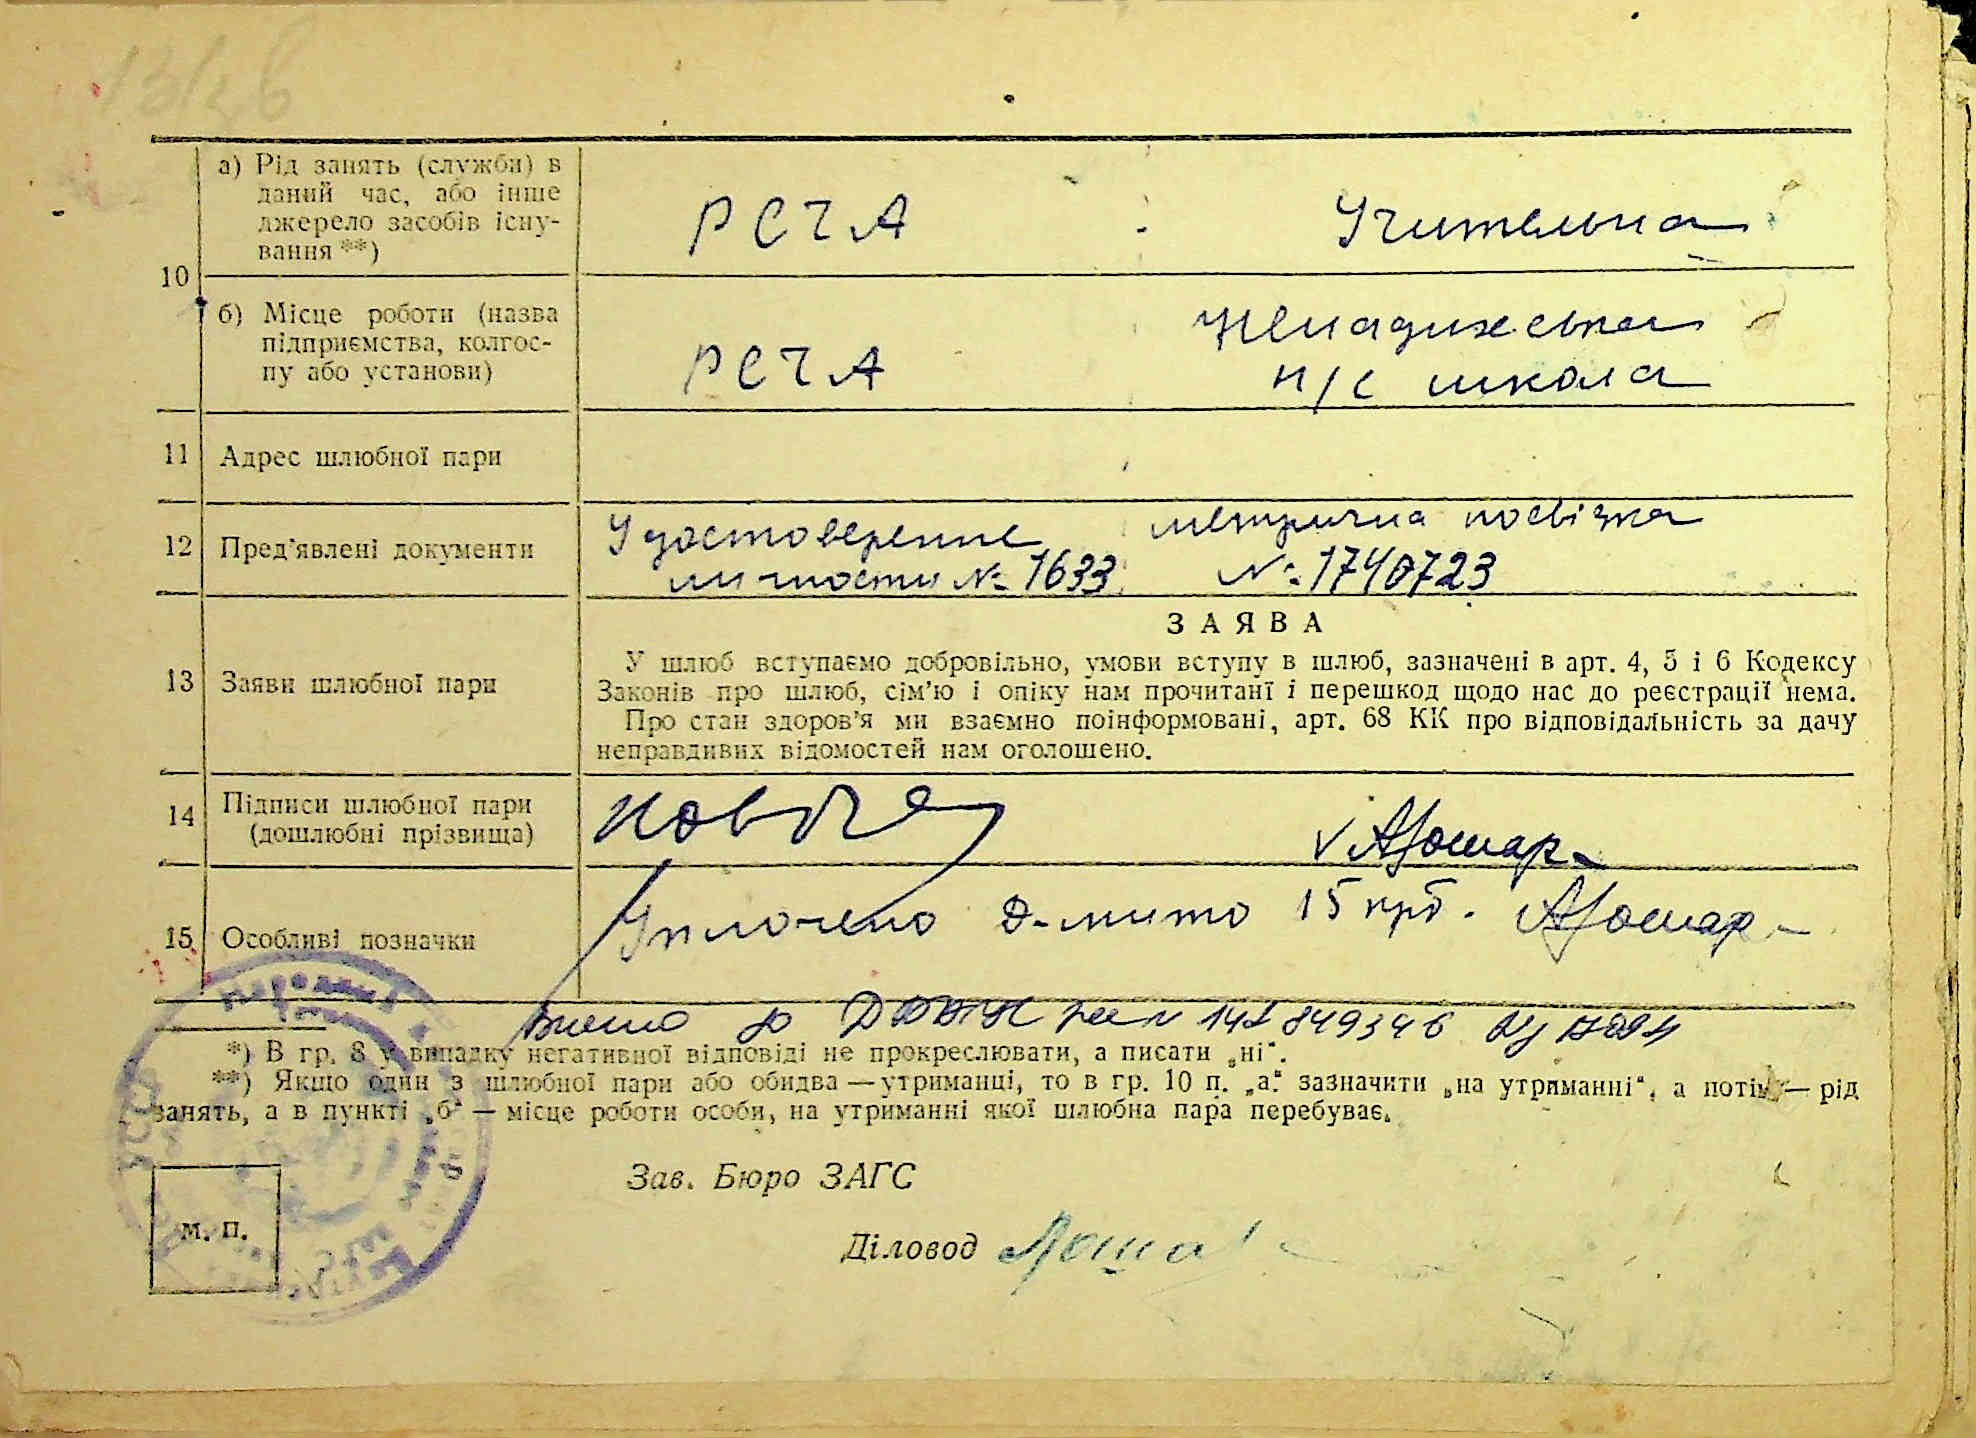 а) Рід занять (служби) в
даний час, або інше
джерело засобів існу-
вання **)
РСЧА
Учителька
10
б) Місце роботи (назва
підприємства, колгос-
пу або установи)
РСЧА
н/с школа
11 Адрес шлюбної пари
12 Пред'явлені документи
Удостоверение
личности № 1633
метрична посвідка
№ 1740723
ЗАЯВА
13 Заяви шлюбної пари
У шлюб вступаємо добровільно, умови вступу в шлюб, зазначені в арт. 4, 5 і 6 Кодексу
Законів про шлюб, сім'ю і опіку нам прочитані і перешкод щодо нас до реєстрації нема.
Про стан здоров'я ми взаємно поінформовані, арт. 68 КК про відповідальність за дачу
неправдивих відомостей нам оголошено.
14 Підписи шлюбної пари
(дошлюбні прізвища)
15 Особливі позначки
Уплочено д-мито 15 крб.
*) В гр. 8 у випадку негативної відповіді не прокреслювати, а писати „ні“.
**) Якщо один з шлюбної пари або обидва — утриманці, то в гр. 10 п. „а“ зазначити „на утриманні“, а потім — рід
занять, а в пункті „б“ — місце роботи особи, на утриманні якої шлюбна пара перебуває.
Зав. Бюро ЗАГС
М. П.
Діловод